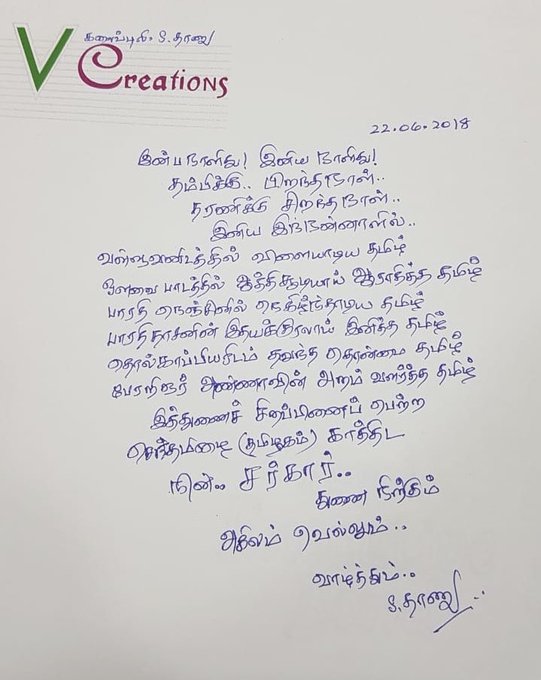 கலைப்புலி. S. தாணு
V Creations
22.06.2018
இன்பநாளிது! இனிய நாளிது!
தம்பிக்கு.. பிறந்தநாள்..
தரணிக்கு சிறந்தநாள்..
இனிய இந்நன்னாளில்..
வள்ளுவனிடத்தில் விளையாடிய தமிழ்
ஔவை பாடத்தில் ஆத்திசூடியாய் ஆராதித்த தமிழ்
பாரதி நெஞ்சினில் நெகிழ்ந்தாடிய தமிழ்
பாரதிதாசனின் இதயக்குரலாய் இனித்த தமிழ்
தொல்காப்பியரிடம் தவழ்ந்த தொன்மை தமிழ்
பேரறிஞர் அண்ணாவின் அறம் வளர்த்த தமிழ்
இத்துணைச் சிறப்பினைப் பெற்ற
செந்தமிழை (தமிழகம்) காத்திட
நின்.. சர்கார்..
துணை நிற்கும்
அகிலம் வெல்லும்..
வாழ்த்தும்..
S. தாணு..